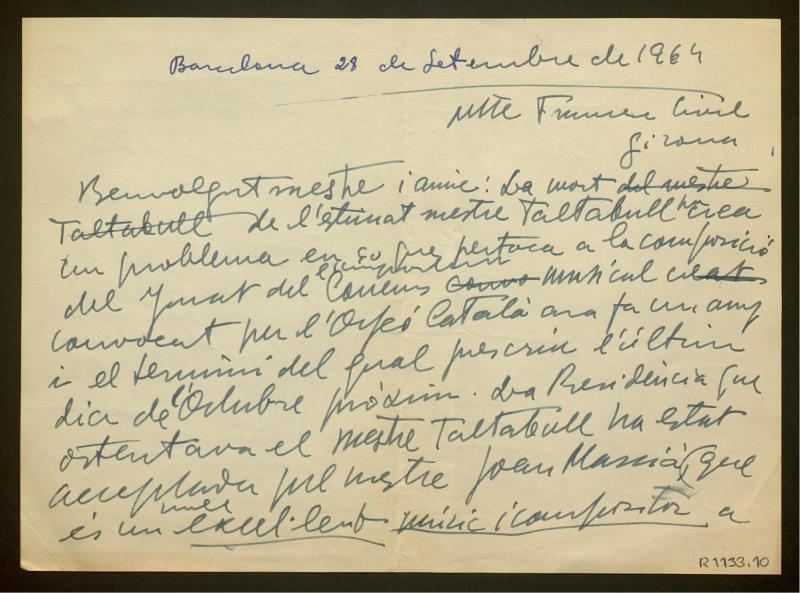 Barcelona 28 de Setembre de 1964
Mtre Francesc Civil
Girona
Benvolgut mestre i amic: La mort del mestre
Taltabull de l'estimat mestre Taltabull crea
un problema en ço que pertoca a la composició
del Jurat del Concurs musical creat
convocat per l'Orfeó Català ara fa un any
i el termini del qual prescriu l'últim
dia de l'Octubre pròxim. La Presidència que
ostentava el mestre Taltabull ha estat
acceptada pel mestre Joan Massià, que
és un excel·lent músic i compositor a
R 1133.10